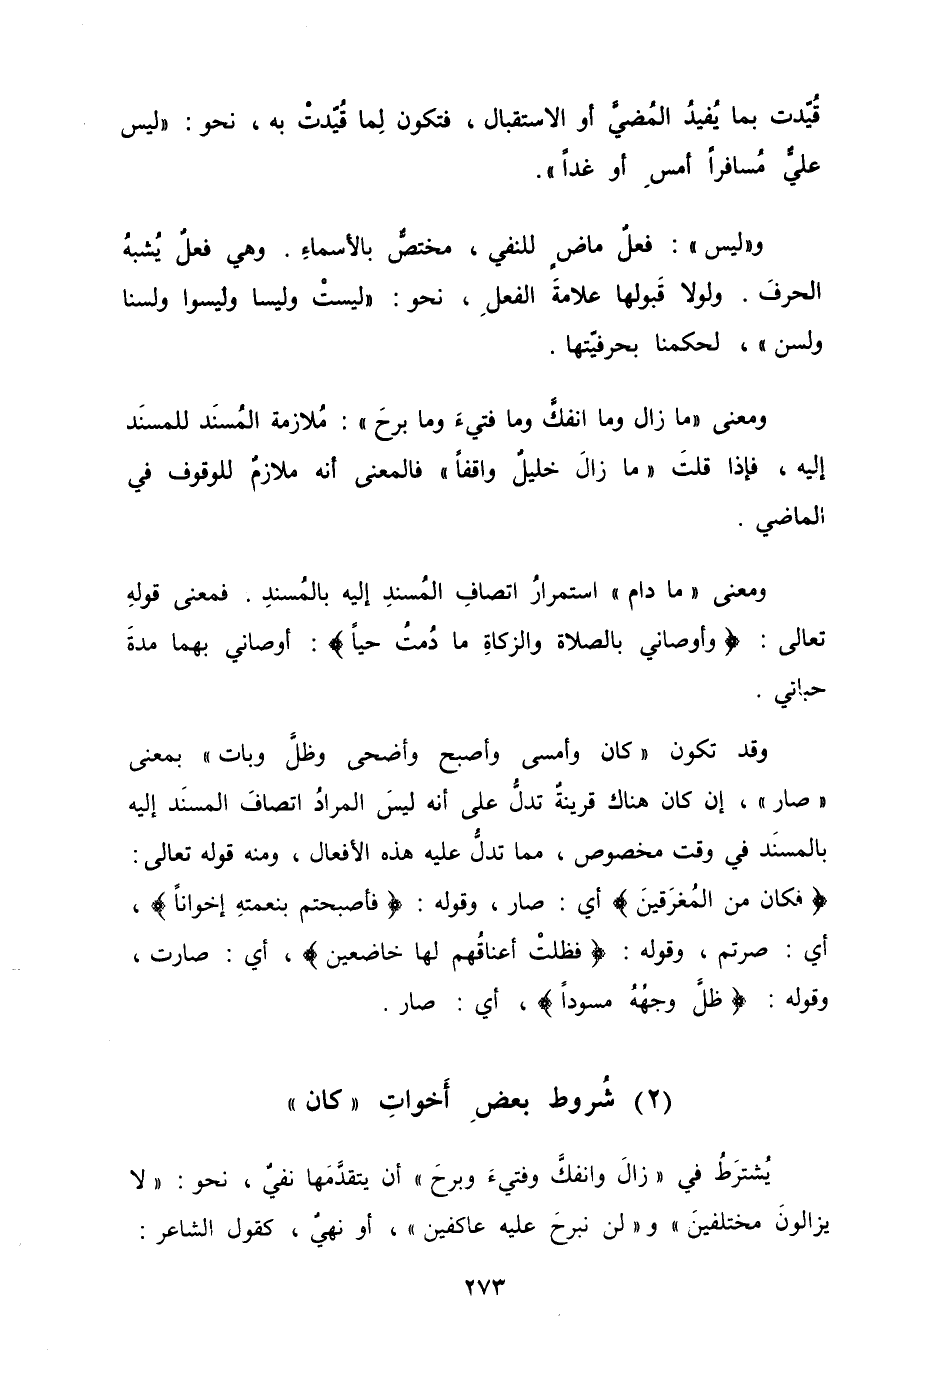 قُيّدت بما يُفيدُ المُضيَّ أو الاستقبال ، فتكون لِما قُيّدتْ به ، نحو : «ليس
عليٌّ مُسافراً أمسِ أو غداً» .
و«ليس» : فعلٌ ماضٍ للنفي ، مختصٌّ بالأسماءِ . وهي فعلٌ يُشبهُ
الحرفَ . ولولا قَبولها علامةَ الفعلِ ، نحو : «ليستْ وليسا وليسوا ولسنا
ولسن» ، لحكمنا بحرفيّتها .
ومعنى «ما زال وما انفكَّ وما فتيءَ وما برحَ» : مُلازمة المُسنَد للمسنَد
إليه ، فإذا قلتَ «ما زالَ خليلٌ واقفاً» فالمعنى أنه ملازمٌ للوقوف في
الماضي .
ومعنى «ما دام» استمرارُ اتصافِ المُسندِ إليه بالمُسندِ . فمعنى قولهِ
تعالى : ﴿وأوصاني بالصلاة والزكاةِ ما دُمتُ حياً﴾ : أوصاني بهما مدةَ
حياتي .
وقد تكون «كان وأمسى وأصبح وأضحى وظلَّ وبات» بمعنى
«صار» ، إن كان هناك قرينةٌ تدلُّ على أنه ليسَ المرادُ اتصافَ المسنَد إليه
بالمسنَد في وقت مخصوص ، مما تدلُّ عليه هذه الأفعال ، ومنه قوله تعالى :
﴿فكان من المُغرَقينَ﴾ أي : صار ، وقوله : ﴿فأصبحتم بنعمتهِ إخواناً﴾ ،
أي : صرتم ، وقوله : ﴿فظلتْ أعناقُهم لها خاضعين﴾ ، أي : صارت ،
وقوله : ﴿ظلَّ وجهُهُ مسوداً﴾ ، أي : صار .
(٢) شُروط بعضِ أَخواتِ «كان»
يُشترَطُ في «زالَ وانفكَّ وفتيءَ وبرحَ» أن يتقدَّمَها نفيٌ ، نحو : «لا
يزالونَ مختلفينَ» و«لن نبرحَ عليه عاكفين» ، أو نهيٌ ، كقول الشاعر :
٢٧٣